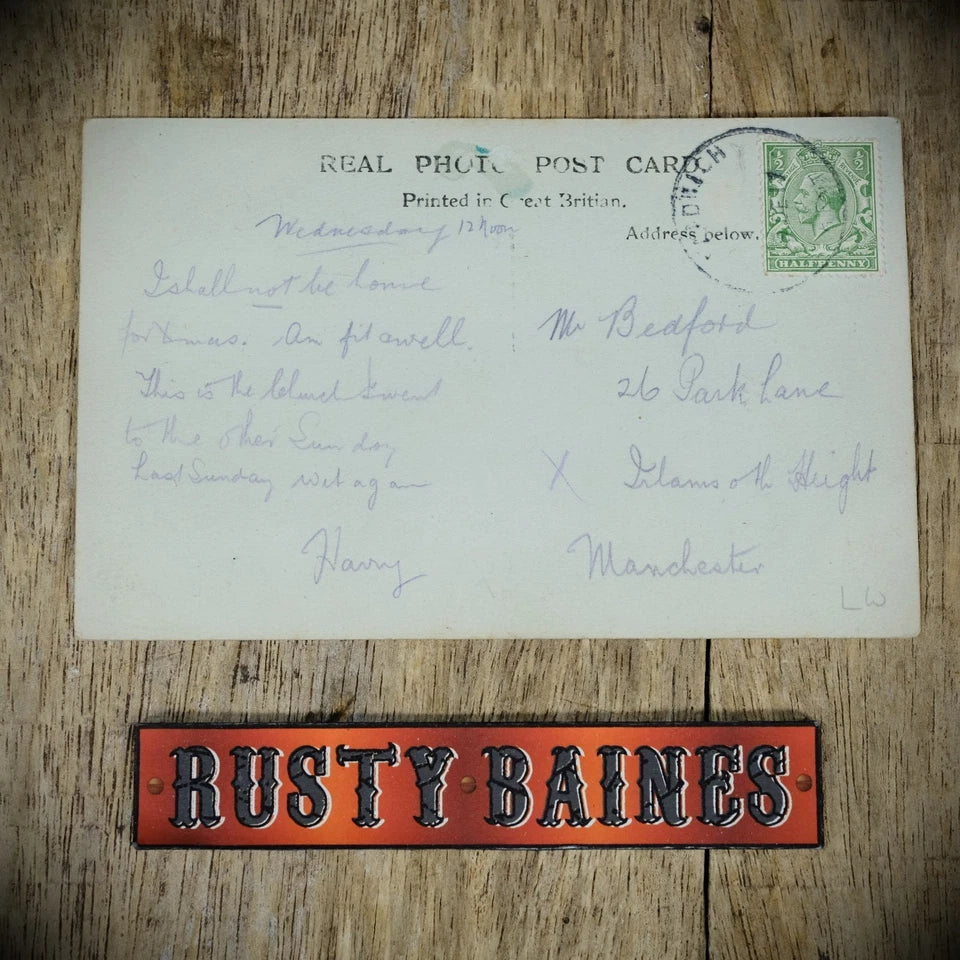 REAL PHOTO POST CARD
Printed in Great Britian.
Address below.
½ ½
HALFPENNY
Wednesday 12 Noon
I shall not be home
for Xmas. Am fit & well.
This is the Church I went
to the other Sunday
Last Sunday wet again
Harry
Mr Bedford
26 Park Lane
X Irlams oth Height
Manchester
LW
RUSTY BAINES